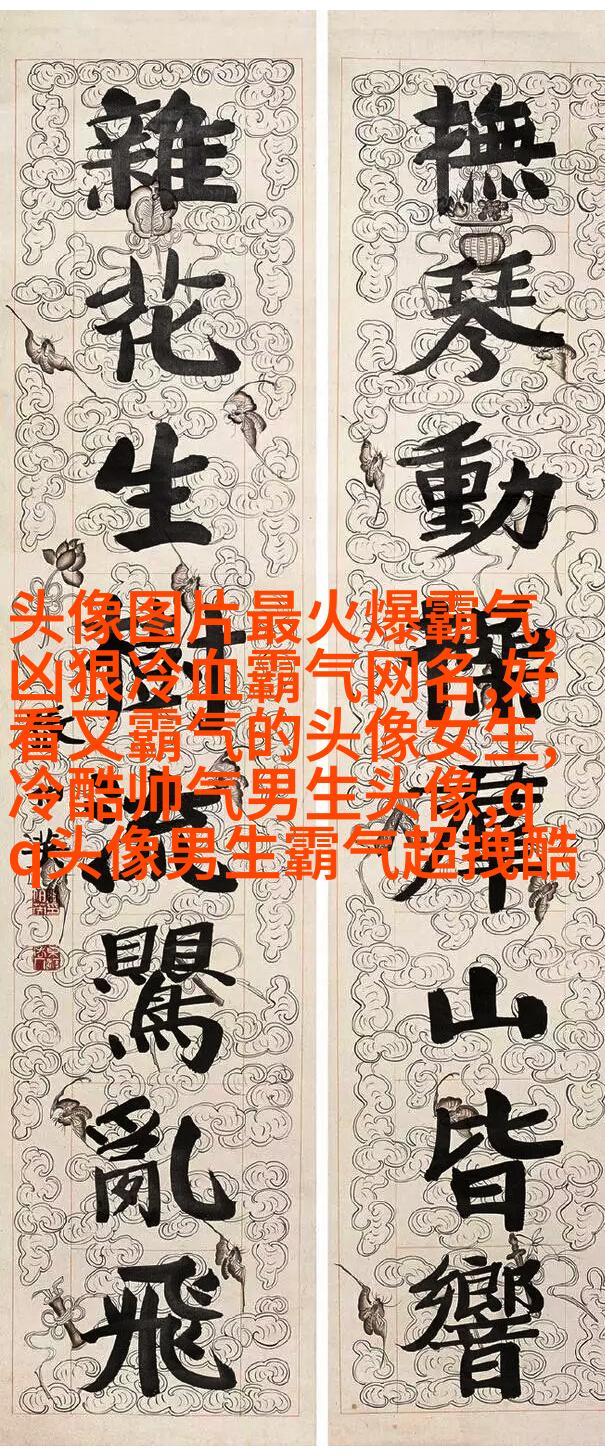 撫琴動操羣山皆響
雜花生樹羣鸎亂飛
头像图片最火爆霸气,
凶狠冷血霸气网名,好
看又霸气的头像女生,
冷酷帅气男生头像,q
q头像男生霸气超拽酷